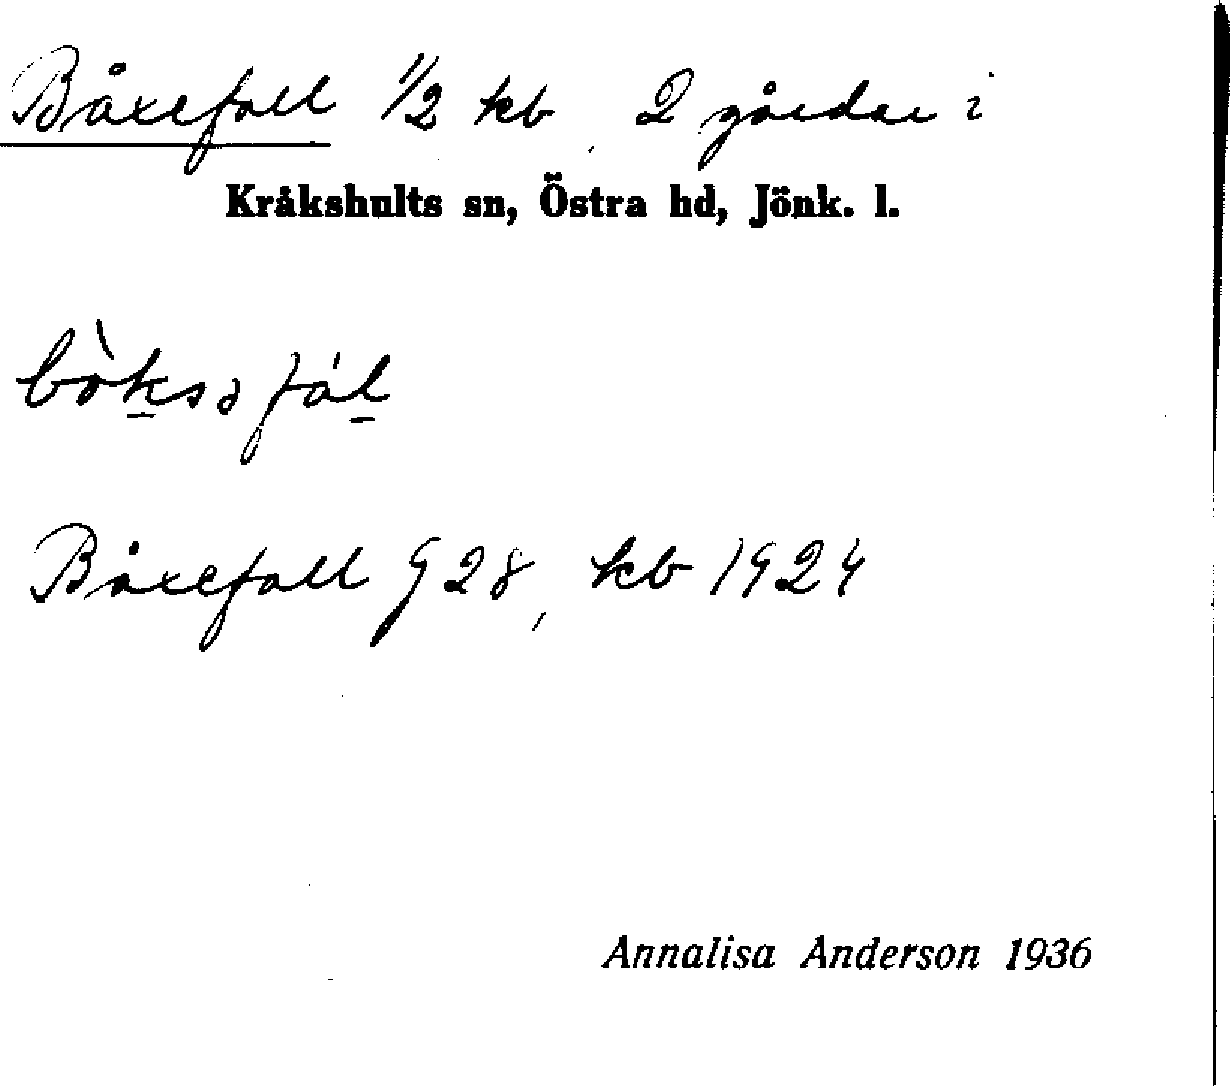 Båxefall 1/2 kb, 2 gårdar i
Kråkshults sn, Östra hd, Jönk. l.
Båxefall G 28, kb 1924
Annalisa Anderson 1936